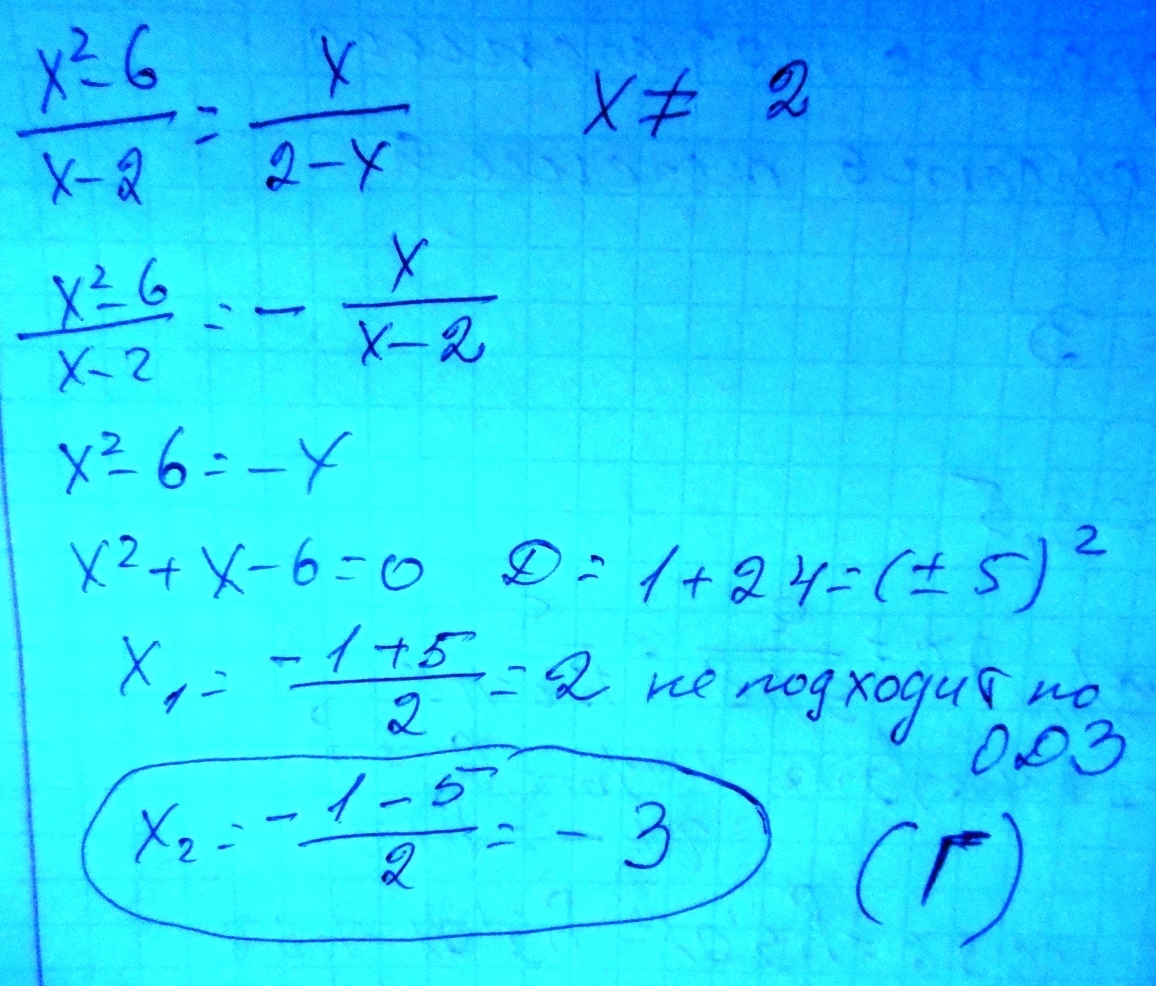 x²-6/x-2 = x/2-x   x ≠ 2
x²-6/x-2 = - x/x-2
x²-6=-x
x²+x-6=0   D=1+24=(±5)²
x₁= -1+5/2 = 2 не подходит по
ОДЗ
x₂= -1-5/2 = -3   (Г)